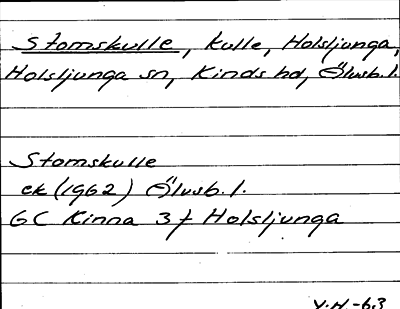 Stomskulle, kulle, Holsljunga,
Holsljunga sn, Kinds hd, Älvsb. l.
Stomskulle
ek (1962) Älvsb. l.
GC Kinna 3 f Holsljunga
V.H.-63